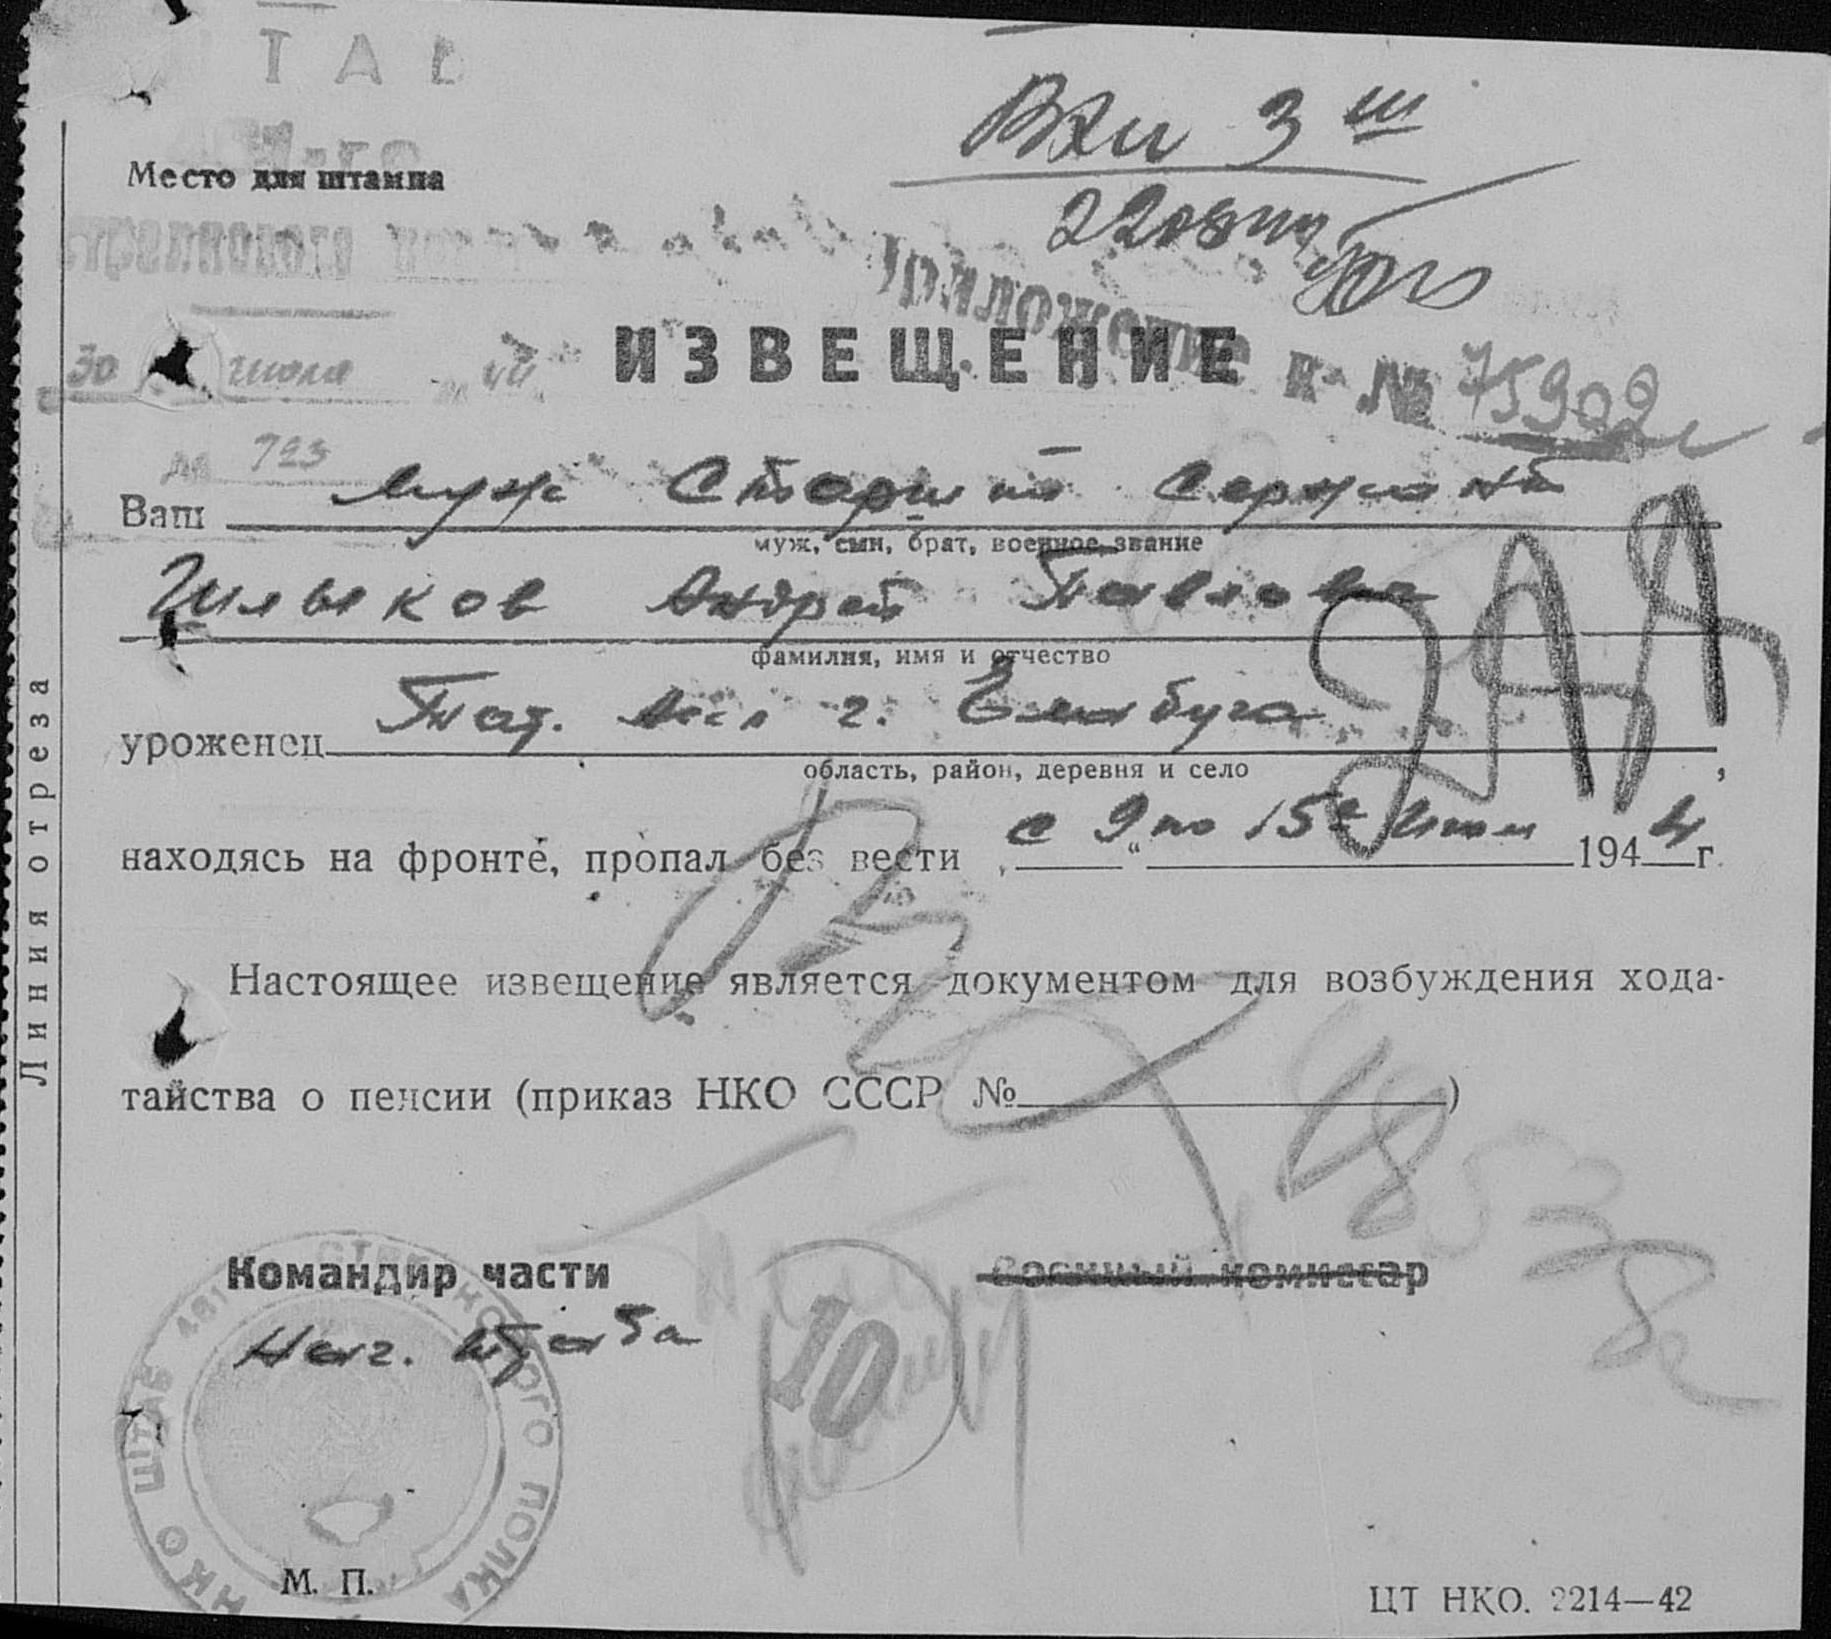 Место для штампа
стрелкового
Приложение к №
75902с
ИЗВЕЩЕНИЕ
30 июля 44
№ 723
Ваш муж Старший Сержант
муж, сын, брат, военное звание
Шлыков Андрей Павлович
фамилия, имя и отчество
уроженец Тат. АССР г. Елабуга
область, район, деревня и село
находясь на фронте, пропал без вести с 9 по 15 1944 г.
Настоящее извещение является документом для возбуждения хода-
тайства о пенсии (приказ НКО СССР № )
48538
Командир части
Военный комиссар
Нач. штаба
10
ШТАБ 481 СТРЕЛКОВОГО ПОЛКА НКО
М. П.
ЦТ НКО. 2214—42
Линия отреза